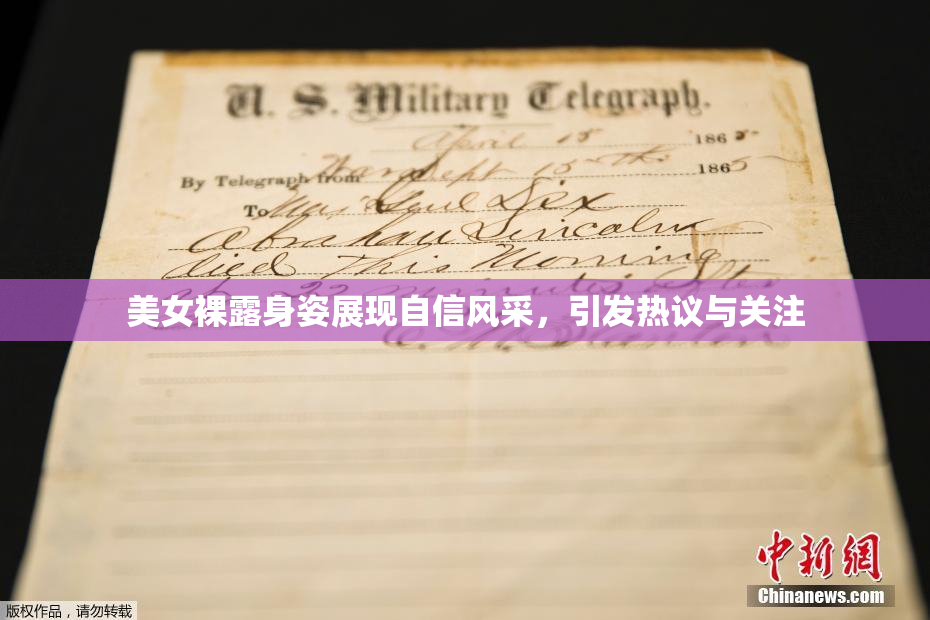 U. S. Military Telegraph.
April 15 1865
By Telegraph from War Dept 15th 1865
To Maj Genl Dix
Abraham Lincoln
died This Morning
at 22 minutes after
美女裸露身姿展现自信风采，引发热议与关注
E. M. Stanton
中新网
Chinanews.com
版权作品，请勿转载